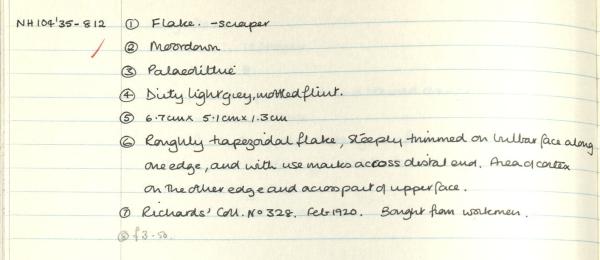 NH104'35-812 ① Flake. - scraper
② Moordown
③ Palaeolithic
④ Dirty light grey, mottled flint.
⑤ 6.7cm x 5.1cm x 1.3cm
⑥ Roughly trapezoidal flake, steeply trimmed on bulbar face along
one edge, and with use marks across distal end. Area of cortex
on the other edge and across part of upper face.
⑦ Richards' Coll. No 328. Feb 1920. Bought from workmen.
⑧ £3-50.